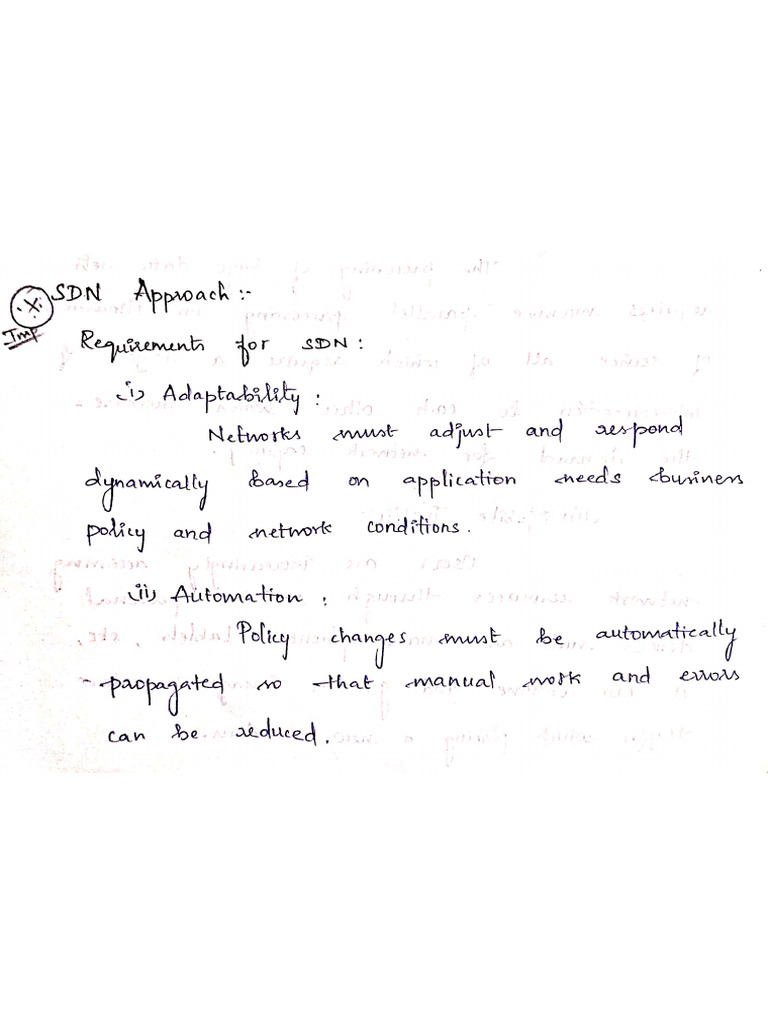 SDN Approach :-
Imp
Requirements for SDN :
i) Adaptability :
Networks must adjust and respond
dynamically based on application needs business
policy and network conditions.
ii) Automation :
Policy changes must be automatically
propagated so that manual work and errors
can be reduced.